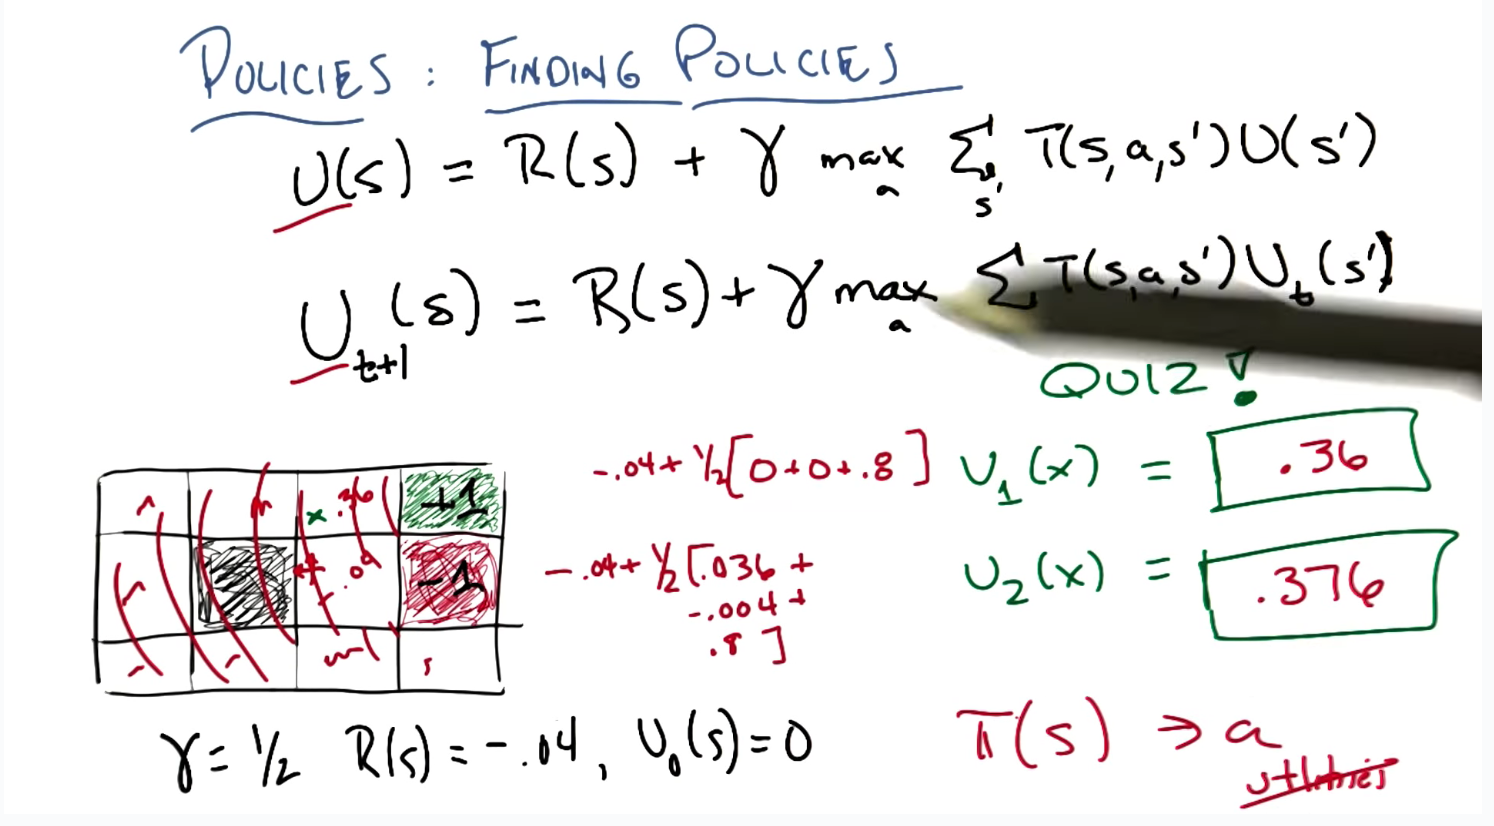 POLICIES: FINDING POLICIES
U(s) = R(s) + γ max_a Σ_s' T(s,a,s')U(s')
U_t+1(s) = R(s) + γ max_a Σ T(s,a,s')U_t(s')
QUIZ!
-.04 + 1/2[0+0+.8] U_1(x) = .36
-.04 + 1/2[.036 +
-.004 +
.8]
U_2(x) = .376
x .36 +1
.04 -1
γ = 1/2 R(s) = -.04, U_0(s) = 0
π(s) → a
utilities